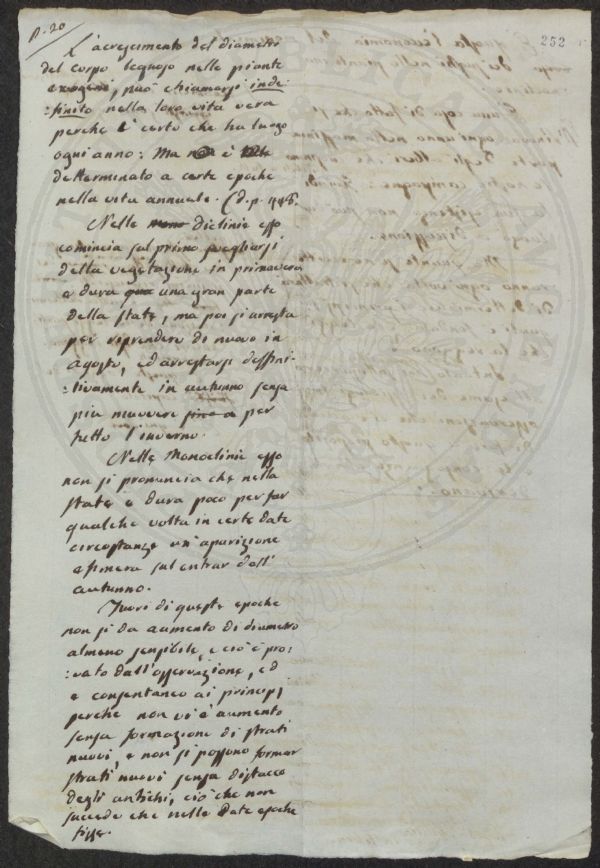 n. 20
252
L'acrescimento del diametro
del corpo legnoso nelle piante
exogeni, può chiamarsi inde-
:finito nella loro vita vera
perche è certo che ha luogo
ogni anno: Ma è
determinato a certe epoche
nella vita annuale. (d. p. 448.
Nelle Diclinie esso
comincia sul primo svegliarsi
della vegetazione in primavera
e dura una gran parte
della state, ma poi si arresta
per riprendere di nuovo in
agosto, ed arrestarsi deffini-
:tivamente in autunno senza
piu muovere fino a per
tutto l'inverno.
Nelle Monoclinie esso
non si pronuncia che nella
state e dura poco per far
qualche volta in certe date
circostanze un'aparizione
efimera sul entrar dell'
autunno.
Fuori di queste epoche
non si da aumento di diametro
almeno sensibile, e ciò è pro:
:vato dall'osservazione, ed
e consentaneo ai principj,
perche non vi è aumento
senza formazione di strati
nuovi, e non si possono formar
strati nuovi senza distacco
degli antichi, ciò che non
succede che nelle date epoche
fisse.